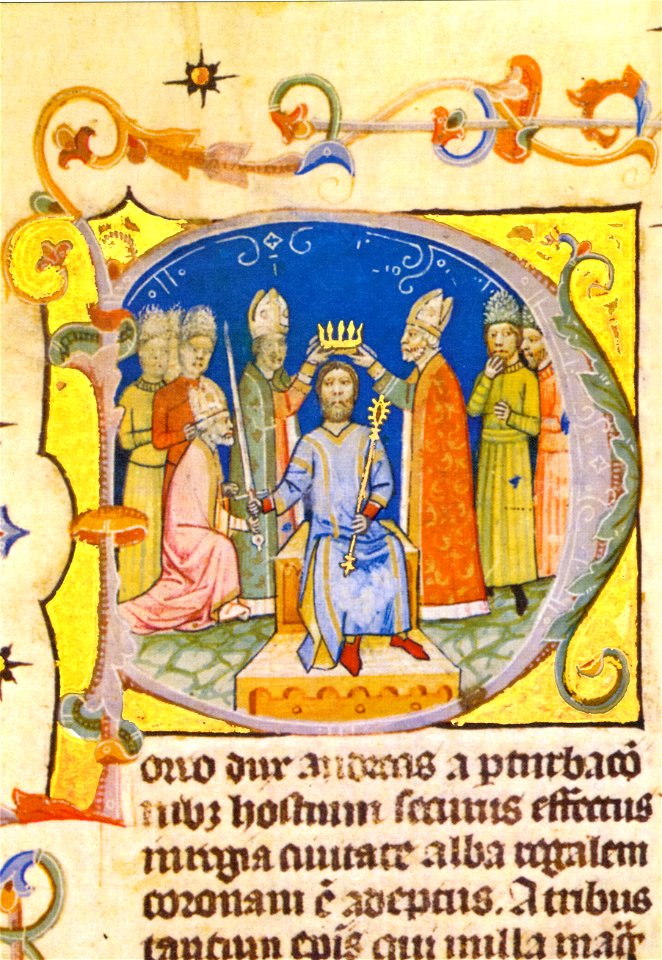 Porro dux andreas a pturbacō
nibꝫ hostium securus effectus
in regia ciuitate alba regalem
coronam ē adeptus. A tribus
tantum ep̄is qui in illa